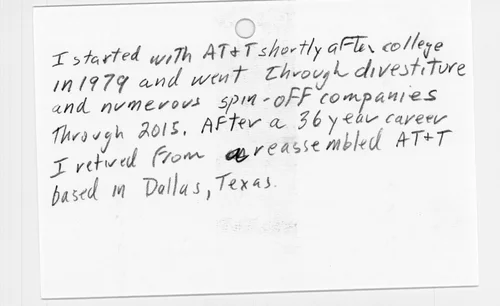 I started with AT+T shortly after college
in 1979 and went through divestiture
and numerous spin-off companies
through 2015. After a 36 year career
I retired from a reassembled AT+T
based in Dallas, Texas.